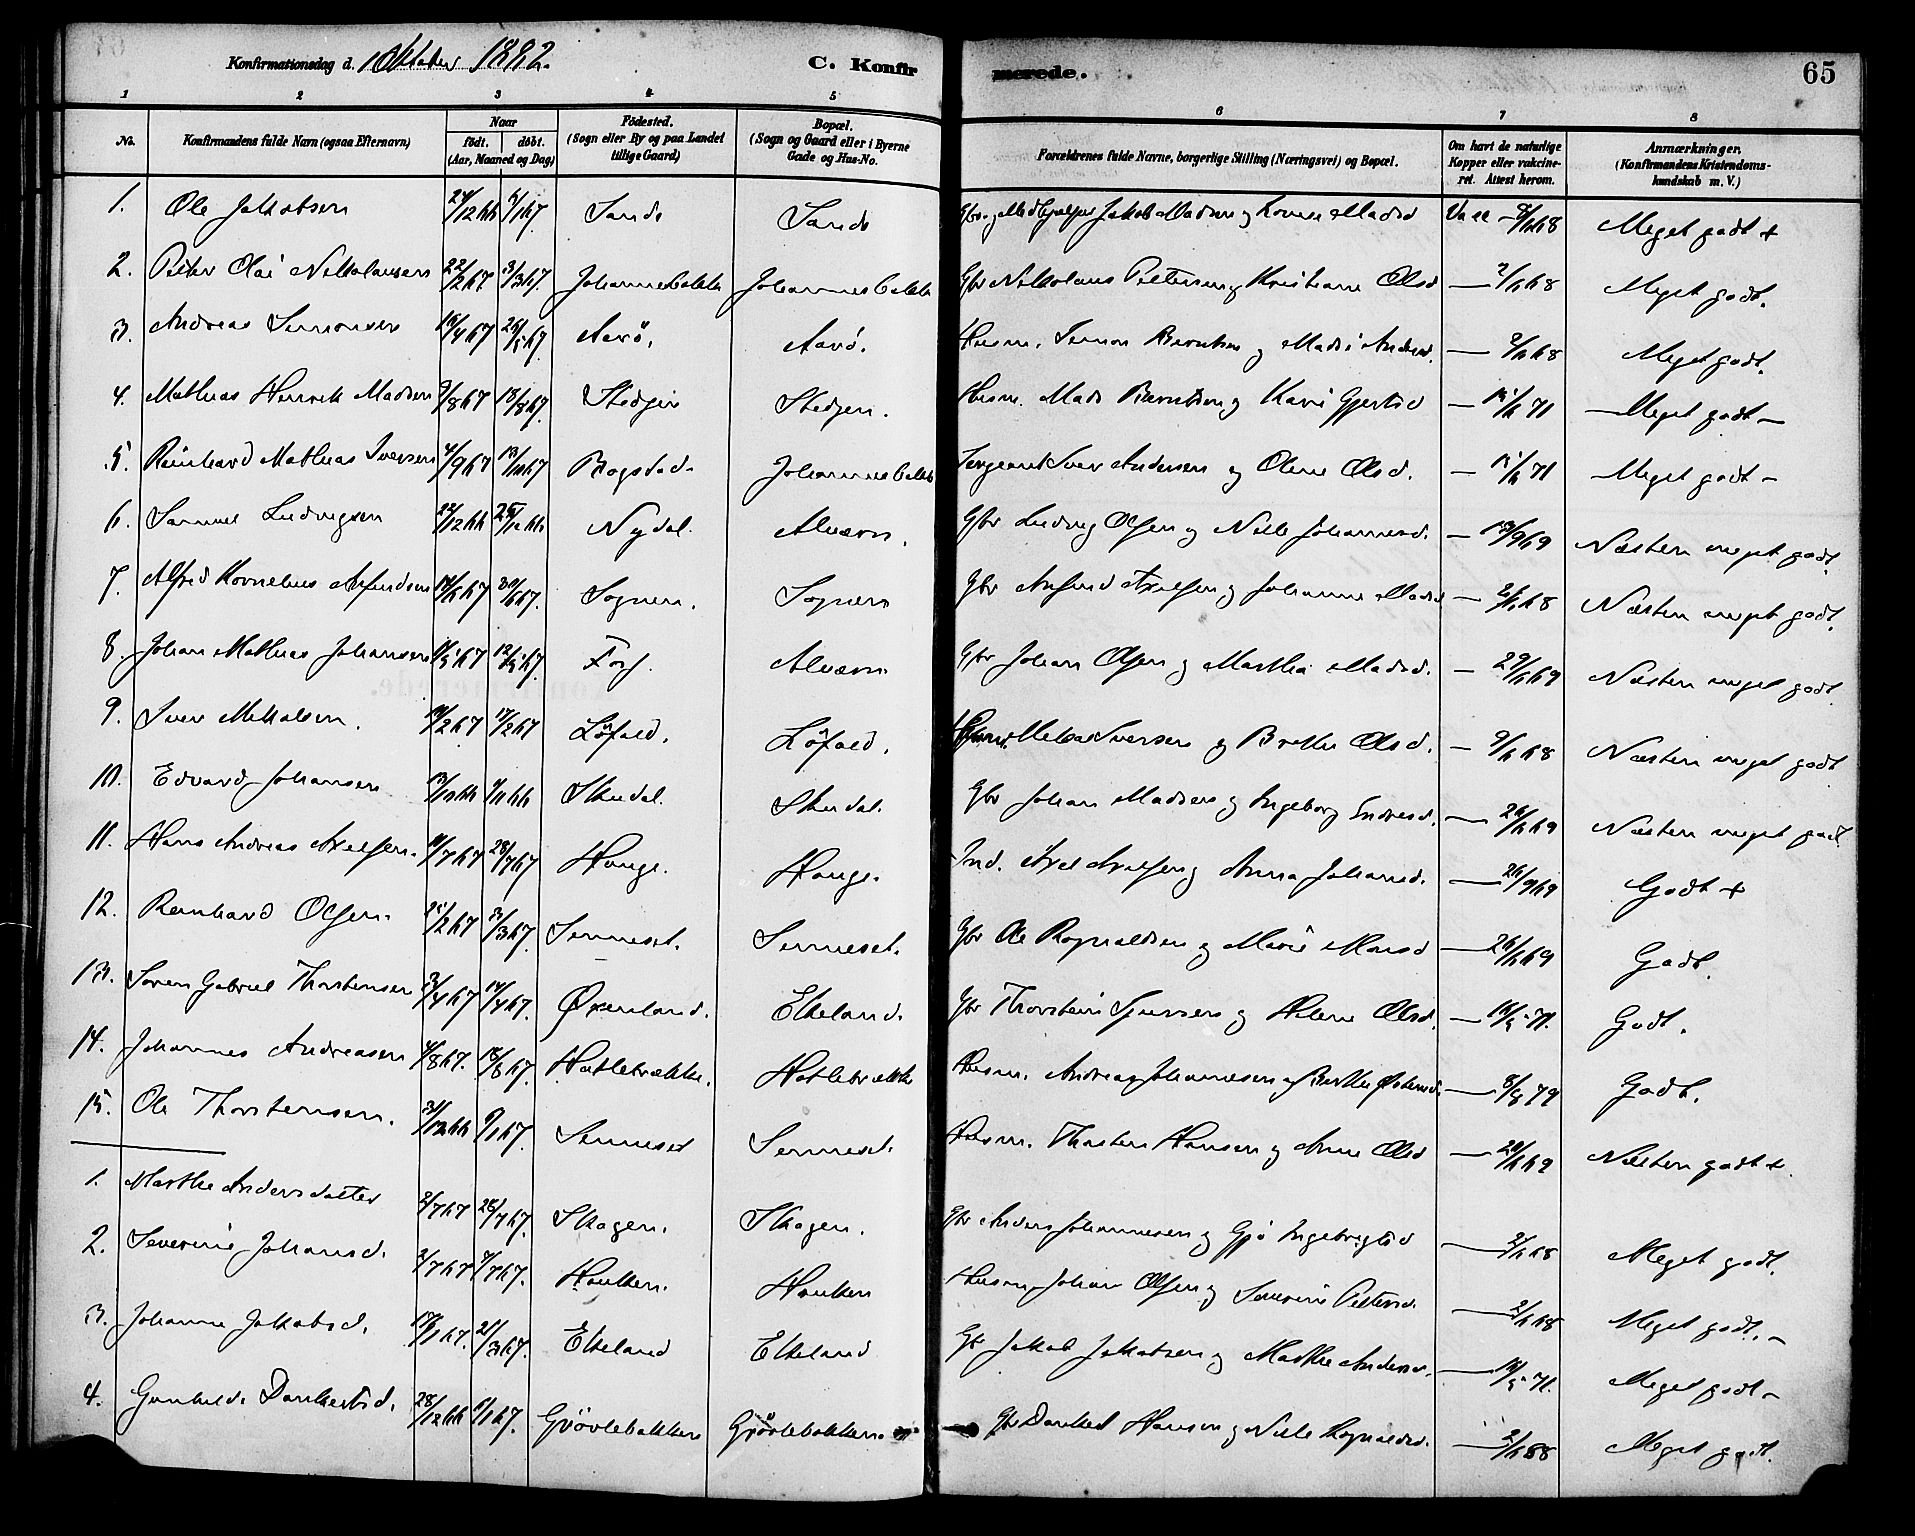 Konfirmationsdag d. 1 Oktober 1882. C. Konfirmerede. 65
1 2 3 4 5 6 7 8
No. Konfirmandens fulde Navn (ogsaa Efternavn) Naar födt. döbt. (Aar, Maaned og Dag) Födested. (Sogn eller By og paa Landet tillige Gaard) Bopæl. (Sogn og Gaard eller i Byerne Gade og Hus-No. Forældrenes fulde Navne, borgerlige Stilling (Næringsvei) og Bopæl. Om havt de naturlige Kopper eller vakcineret. Attest herom. Anmærkninger. (Konfirmandens Kristendomskundskab m. V.)
1. Ole Jakobsen 24/12 66 6/1 67 Sande Sande Jakob Madsen og Madsd Vacc 8/6 68 Meget godt +
2. Peter Olai Nikolausen 22/2 67 3/3 67. Johannesbakke Johannesbakke Gbr Nikolaus Petersen og Kristiane Olsd — 2/6 68 Meget godt.
3. Andreas Simonsen 26/5 67 Aarö. Aarö. Husm. Simon Berntsen og Andersd. — 2/6 68 Meget godt.
4. Mathias Henrik Madsen 9/8 67 18/8 67. Stedjen Stedjen. Husm. Mads Berntsen og Kari Gjertsd — 15/6 71 Meget godt —
5. Reinhard Mathias Iversen 4/9 67 13/10 67 Bogstad. Johannesbakke Sergeant Iver Andersen og Olene Olsd. — 15/6 71 Meget godt —
6. Samuel Ludvigsen 22/12 66 Nydal. Alværn. Gbr Ludvig Olsen og Nille Johannesd. — 19/9 69 Næsten meget godt.
7. Alfred Kornelius Anfindsen 30/6 67. Sognen. Sognen Gbr Anfind Axelsen og Johanne Madsd — 2/6 68 Næsten meget godt.
8. Johan Mathias Johansen 12/5 67. Alværn Gbr Johan Olsen og Marthe Madsd. — 29/6 69 Næsten meget godt
9. Iver Mikalsen. 10/2 67 17/2 67 Löfald. Löfald. Iversen og Brithe Olsd. — 9/6 68 Næsten meget godt
10. Edvard Johansen 13/10 66 4/11 66 Skudal. Skudal. Gbr Johan Madsen og Ingeborg Endresd. — 26/6 69 Næsten meget godt
11. Hans Andreas Axelsen. 11/7 67 28/7 67 Hauge. Hauge. Ind. Axel Axelsen og Anna Johansd. — 26/9 69 Godt +
12. Reinhard Olsen. 25/2 67 31/3 67. Senneset. Senneset. Gbr Ole Rognaldsen og Marie Monsd — 26/6 69 Godt.
13. Søren Gabriel Thorstensen 3/4 67 14/4 67. Øxenland. Elkeland. Gbr Thorstein og Helene Olsd. — 16/5 71. Godt.
14. Johannes Andreasen 4/8 67. 18/8 67. Hatlebrække. Hatlebrække Husm. Andreas Johannesen og Brithe — 8/8 79 Godt.
15. Ole Thorstensen. 31/12 66 6/1 67. Senneset Senneset. Husm. Thosten Hansen og Anne Olsd — 29/6 69 Næsten godt +.
1. Marthe Andersdatter 2/7 67 28/7 67. Skogen. Skogen. Gbr Anders Johannesen og Gjö Ingebrigtsd — 2/6 68 Meget godt.
2. Severine Johansd. 2/7 67 7/7 67. Hauken. Hauken Husm. Johan Olsen og Severine Petersd. — 2/6 68 Meget godt. —
3. Johanne Jakobsd. 21/3 67. Elkeland Elkeland Gbr Jakob Jakobsen og Marthe Andersd. — 16/5 71. Meget godt —
4. Gunhilde Dankertsd. 28/12 66 Gjövlebakken Gjövlebakken. Gbr Dankert Hansen og Nille Rognaldsd. — 2/6 68 Meget godt.